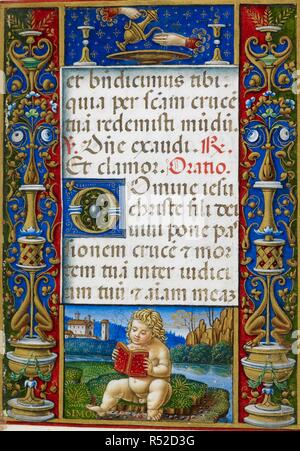 et bñdicimus tibi.
quia per scãm crucẽ
tuã redemisti mũdũ.
V. Dñe exaudi. R.
Et clamor. Oratio.
Domine iesu
christe fili dei
uiui pone pas
sionem crucẽ & mor
tem tuã inter iudici
um tuũ & aĩam meaz
SIMON
alamy
Image ID: R52D3G
www.alamy.com